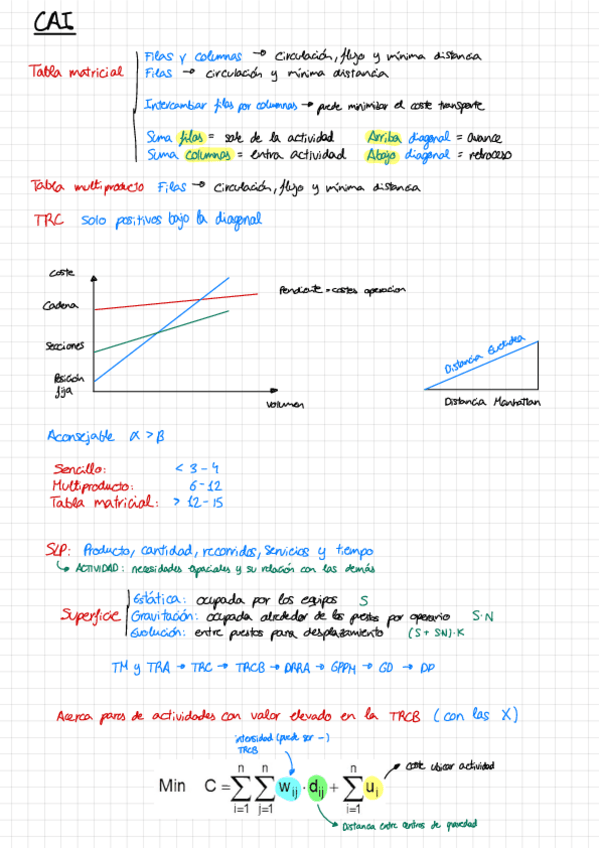 CAI
Filas y columnas → circulación, flujo y mínima distancia
Tabla matricial
Filas → circulación y mínima distancia
Intercambiar filas por columnas → puede minimizar el coste transporte
Suma filas = sale de la actividad Arriba diagonal = avance
Suma columnas = entra actividad Abajo diagonal = retroceso
Tabla multiproducto Filas → circulación, flujo y mínima distancia
TRC solo positivos bajo la diagonal
Coste
Pendiente = costes operacion
Cadena
Secciones
Posición
fija
Volumen
Distancia Euclidea
Distancia Manhattan
Aconsejable α > β
Sencillo: < 3-4
Multiproducto: 6-12
Tabla matricial: > 12-15
SLP: Producto, cantidad, recorridos, servicios y tiempo
ACTIVIDAD: necesidades espaciales y su relación con las demás
Superficie
Estática: ocupada por los equipos S
Gravitación: ocupada alrededor de los puestos por operario S·N
Evolución: entre puestos para desplazamiento (S + SN)·K
TM y TRA → TRC → TRCB → DRRA → GPPM → GD → DP
Acerca pares de actividades con valor elevado en la TRCB (con las X)
intensidad (puede ser -)
TRCB
coste ubicar actividad
Min C = ∑ⁿᵢ₌₁ ∑ⁿⱼ₌₁ wij · dij + ∑ⁿᵢ₌₁ ui
Distancia entre centros de gravedad